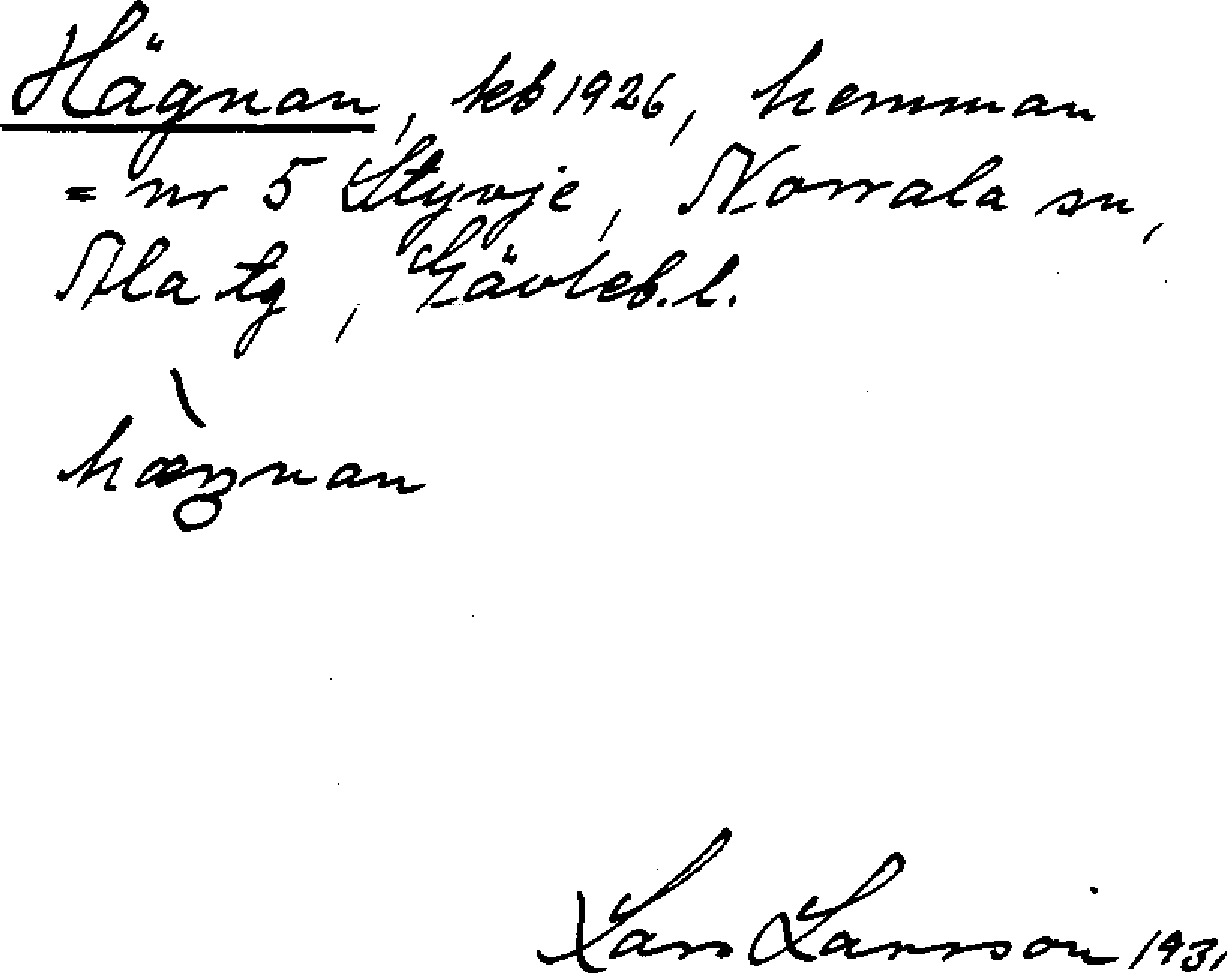 Hägnan, keb 1926, hemman
= nr 5 Styvje, Norrala sn,
Ala tg, Gävleb. l.
hæŋnan
Lars Larsson 1931